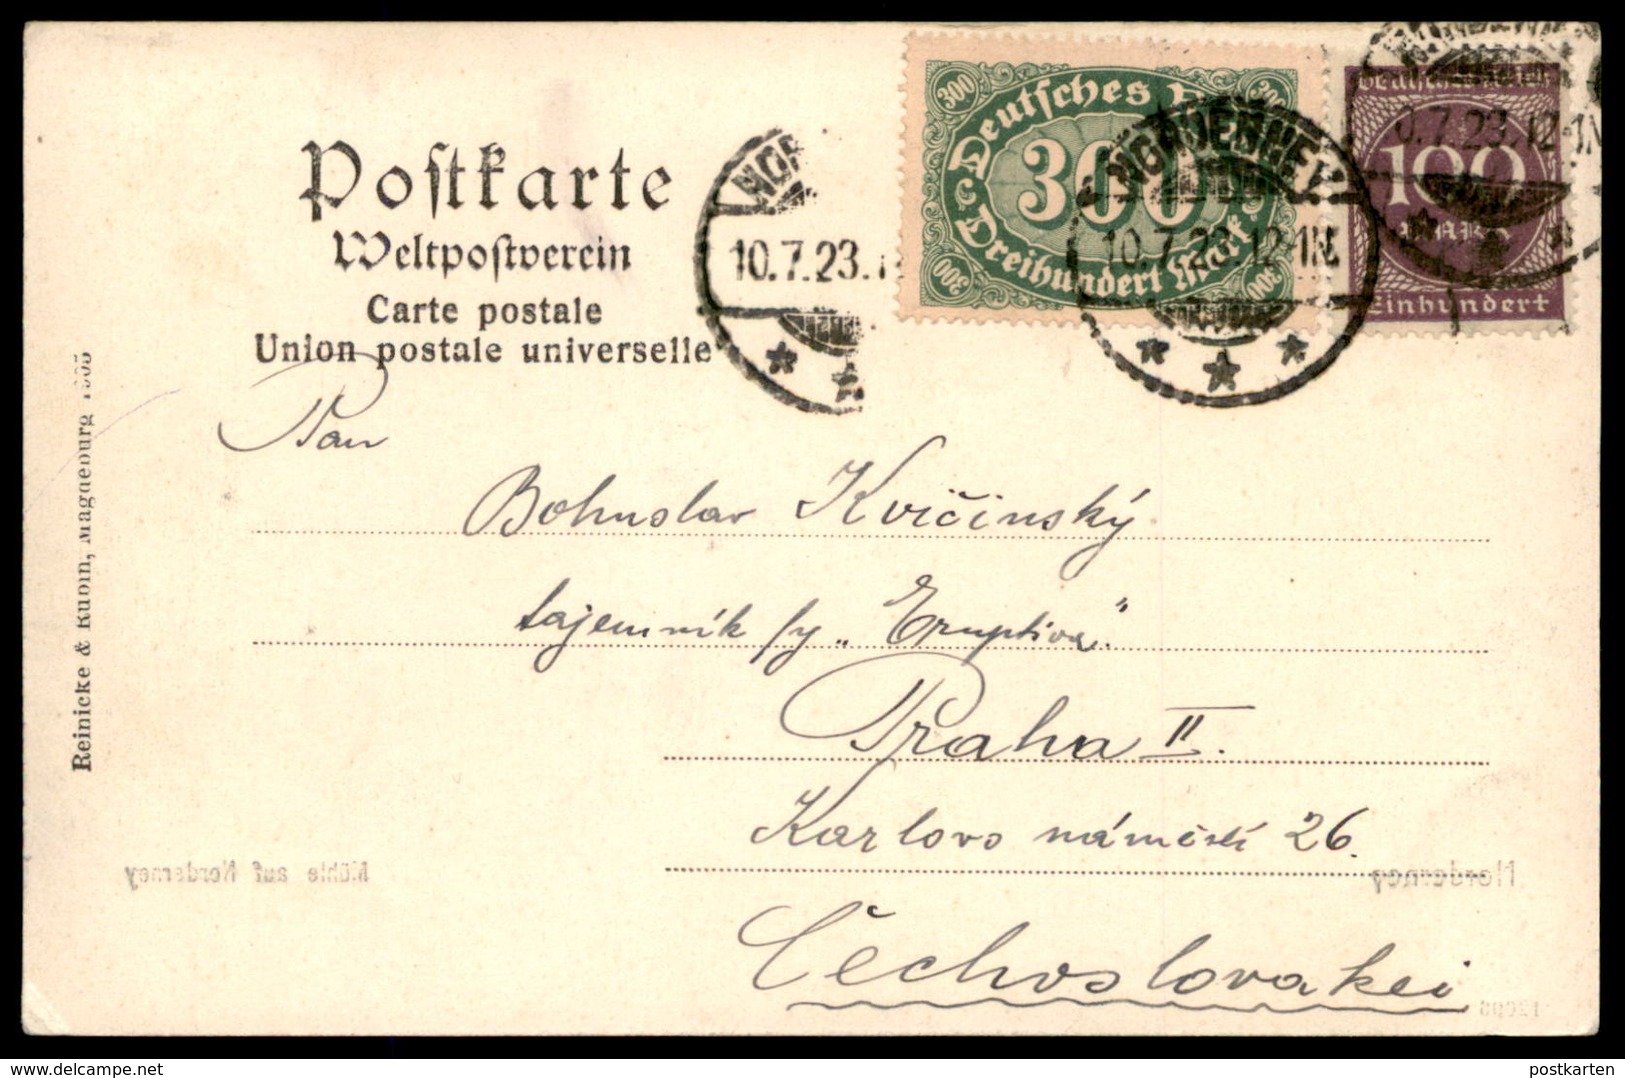 Postkarte
Weltpostverein
Carte postale
Union postale universelle
Reinicke & Rubin, Magdeburg 1905
300
Deutsches
300
Dreihundert Mark
300
300
Deutsches Reich
100
MARK
Einhundert
NOR
10.7.23.
NORDERNEY.
10.7.23.12-1N.
0.7.23.12-1N
Pan
Bohuslav Kvičinský
tajemník fy „Eruptiva"
Praha II.
Karlovo náměstí 26.
Čechoslovakei
Mühle auf Norderney
Norderney
http://www.delcampe.net
postkarten